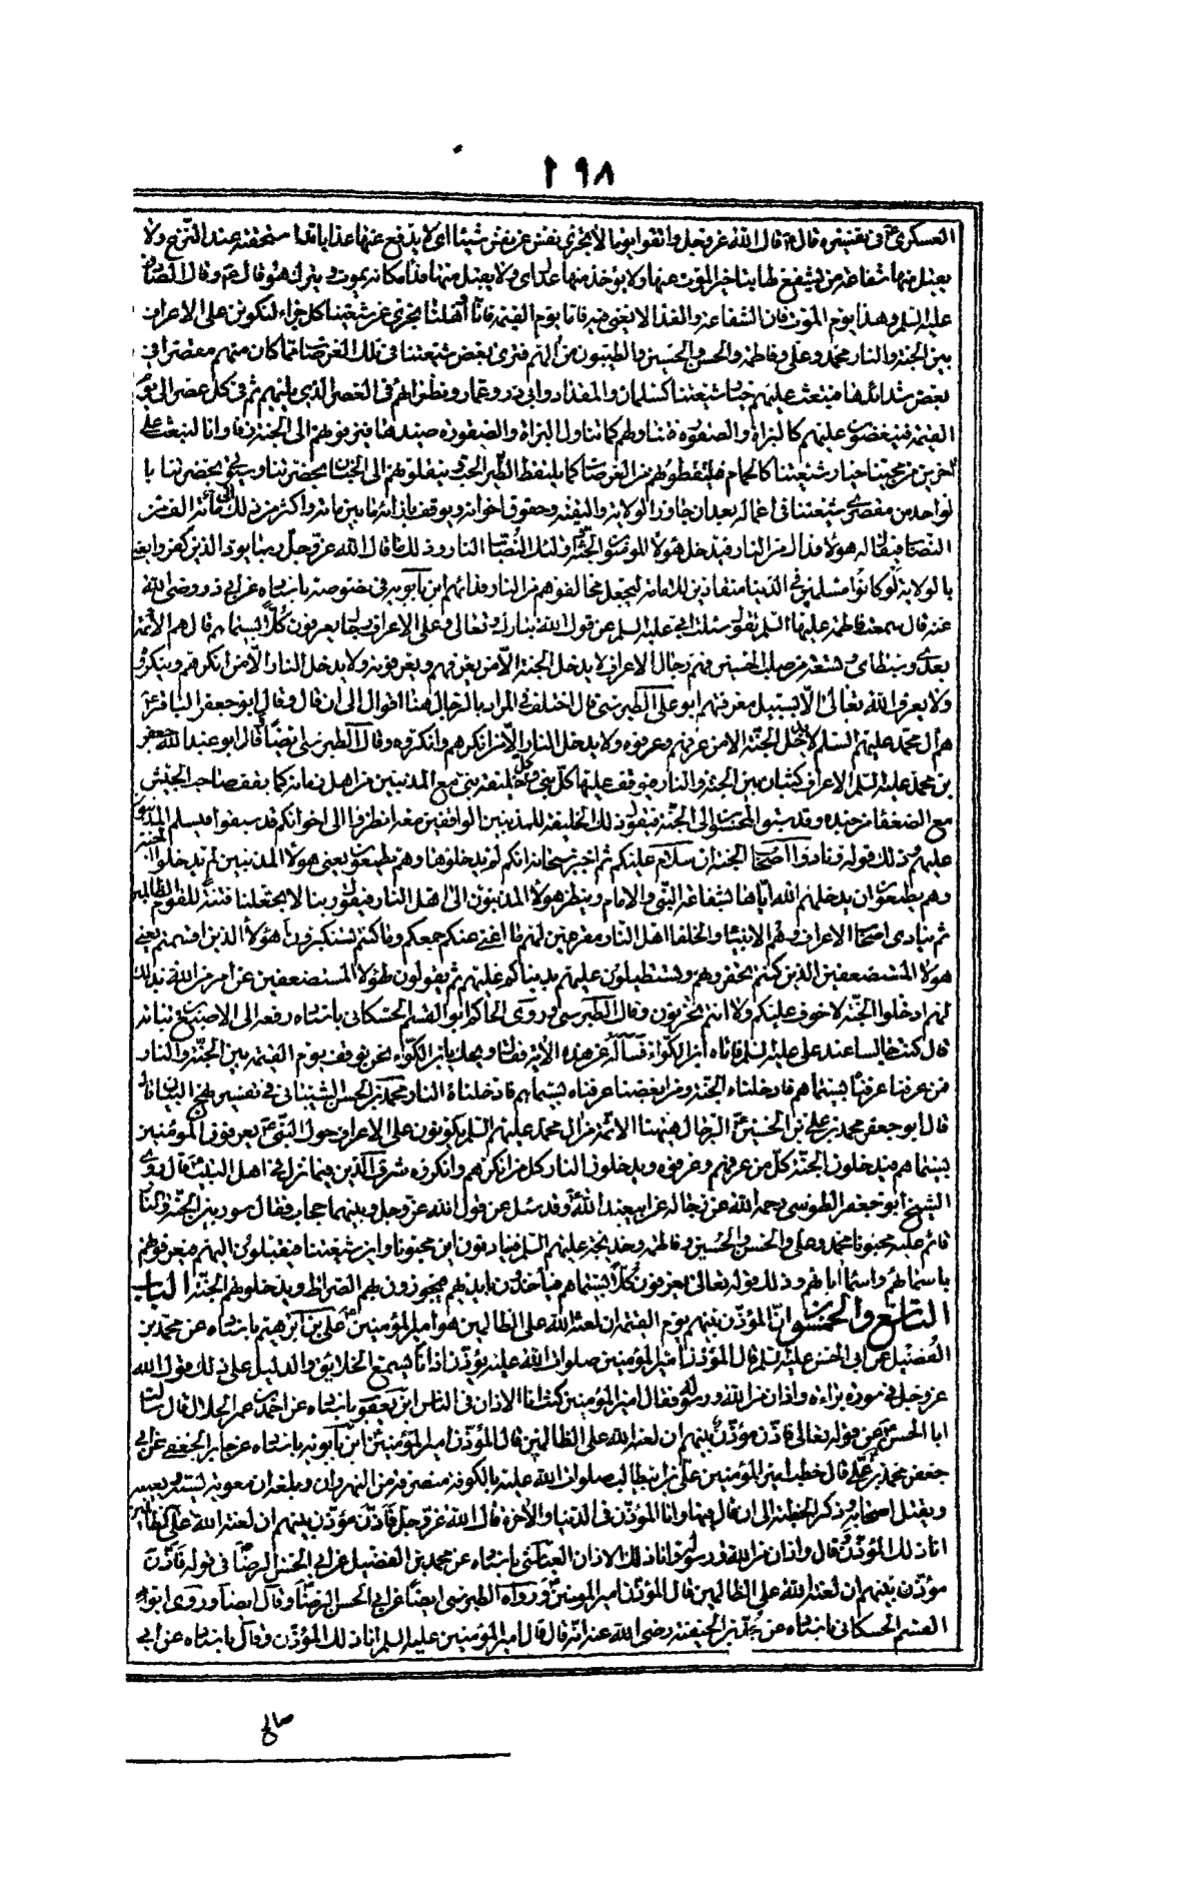 ٢٩٨
العسكري ع في تفسيره قال ع قال الله عز وجل واتقوا يوما لا تجزى نفس عن نفس شيئا اي لا يدفع عنها عذابا قد استحقته عند النزع ولا
يقبل منها شفاعة من يشفع لها بتاخير الموت عنها ولا يؤخذ منها عدل اي ولا يقبل منها فداء مكانه يموت ويترك هو قال ع وقال الصادق
عليه السلم وهذا يوم الموت فان الشفاعة والفداء لا يغنى فيه فاما يوم القيمة فانا واهلنا نجزى عن شيعتنا كل جزاء لنكونن على الاعراف
بين الجنة والنار محمد وعلي وفاطمة والحسن والحسين والطيبون من آلهم فنرى بعض شيعتنا في تلك العرصات فما كان منهم مقصرا في
بعض شدائدها فنبعث عليهم خيار شيعتنا كسلمان والمقداد وابي ذر وعمار ونظرائهم في العصر الذي يليهم ثم في كل عصر الى يوم
القيمة فينقضون عليهم كالبزاة والصقورة فيتناولهم كما تتناول البزاة والصقورة صيدها فيزفونهم الى الجنة زفا وانا لنبعث على
اخرين من محبينا خيار شيعتنا كالحمام فيلتقطونهم من العرصات كما يلتقط الطير الحب وينقلونهم الى الجنان بحضرتنا وسيؤتى بحضرتنا با
لواحد من مقصرى شيعتنا في اعماله بعد ان حاز الولاية والتقية وحقوق اخوانه ويوقف بازائه ما بين مائة واكثر من ذلك الى مائة الف من
النصاب فيقال له هؤلاء فداؤك من النار فيدخل هؤلاء المؤمنون الجنة واولئك النصاب النار وذلك ما قال الله عز وجل ربما يود الذين كفروا يعني
بالولاية لو كانوا مسلمين في الدنيا منقادين للامامة ليجعل مخالفوهم من النار فداءهم ابن بابويه في خصوصه باسناده عن ابي ذر رضي الله
عنه قال سمعت فاطمة عليها السلم تقول سئلت ابي عليه السلم عن قول الله تبارك وتعالى وعلى الاعراف رجال يعرفون كلا بسيماهم قال هم الائمة
بعدى وسبطاي وتسعة من صلب الحسين فهم رجال الاعراف لا يدخل الجنة الا من يعرفهم ويعرفونه ولا يدخل النار الا من انكرهم وينكرونه
ولا يعرف الله تعالى الا بسبيل معرفتهم ابو علي الطبرسي قال اختلف في المراد بالرجال هنا على اقوال الى ان قال وقال ابو جعفر الباقر ع
هم آل محمد عليهم السلم لا يدخل الجنة الا من عرفهم وعرفوه ولا يدخل النار الا من انكرهم وانكروه وقال الطبرسي ايضا قال ابو عبد الله جعفر
بن محمد عليه السلم الاعراف كثبان بين الجنة والنار فيوقف عليها كل نبي وكل خليفة نبي مع المذنبين من اهل زمانه كما يقف صاحب الجيش
مع الضعفاء من جنده وقد سبق المحسنون الى الجنة فيقول ذلك الخليفة للمذنبين الواقفين معه انظروا الى اخوانكم قد سبقوا فيسلم المذنبون
عليهم وذلك قوله ونادوا اصحاب الجنة ان سلام عليكم ثم اخبر سبحانه انهم لم يدخلوها وهم يطمعون يعني هؤلاء المذنبين لم يدخلوا الجنة
وهم يطمعون ان يدخلهم الله اياها بشفاعة النبي والامام وينظر هؤلاء المذنبون الى اهل النار فيقولون ربنا لا تجعلنا مع القوم الظالمين
ثم ينادى اصحاب الاعراف وهم الانبياء والخلفاء اهل النار مقرعين لهم ما اغنى عنكم جمعكم وما كنتم تستكبرون أهؤلاء الذين اقسمتم يعني
هؤلاء المستضعفين الذين كنتم تحقرونهم وتستطيلون عليهم بدنياكم عليهم ثم يقولون لهؤلاء المستضعفين عن امر من الله بذلك
لهم ادخلوا الجنة لا خوف عليكم ولا انتم تحزنون وقال الطبرسي وروى الحاكم ابو القسم الحسكاني باسناده رفعه الى الاصبغ بن نباتة
قال كنت جالسا عند علي عليه السلم فاتاه ابن الكواء فسأله عن هذه الاية فقال ويحك يا بن الكواء نحن نوقف يوم القيمة بين الجنة والنار
فمن عرفنا عرفناه بسيماهم فادخلناه الجنة ومن ابغضنا عرفناه بسيماهم فادخلناه النار محمد بن الحسن الشيباني في تفسير نهج البيان قال
قال ابو جعفر محمد بن علي بن الحسين ع الرجال هيهنا الائمة من آل محمد عليهم السلم يكونون على الاعراف حول النبي ع يعرفون المؤمنين
بسيماهم فيدخلون الجنة كل من عرفهم وعرفوه ويدخلون النار كل من انكرهم وانكروه شرف الدين فيما نزل في اهل البيت قال روى
الشيخ ابو جعفر الطوسي رحمه الله عن رجاله عن ابي عبد الله ع وقد سئل عن قول الله عز وجل وبينهما حجاب فقال سور بين الجنة والنار
قائم عليه محمد وعلي والحسن والحسين وفاطمة وخديجة عليهم السلم فينادون اين محبونا واين شيعتنا فيقبلون اليهم فيعرفونهم
باسمائهم واسماء ابائهم وذلك قوله تعالى يعرفون كلا بسيماهم فيأخذون بايديهم فيجوزون بهم الصراط ويدخلونهم الجنة الباب
التاسع والخمسون ان المؤذن بينهم يوم القيمة ان لعنة الله على الظالمين هو امير المؤمنين ع علي بن ابرهيم باسناده عن محمد بن
الفضيل عن ابي الحسن عليه السلم قال المؤذن امير المؤمنين صلوات الله عليه يؤذن اذانا يسمع الخلائق والدليل على ذلك قول الله
عز وجل في سورة براءة واذان من الله ورسوله فقال امير المؤمنين كنت انا الاذان في الناس ابن يعقوب باسناده عن احمد بن عمر الحلال قال سألت
ابا الحسن ع عن قوله تعالى فاذن مؤذن بينهم ان لعنة الله على الظالمين قال المؤذن امير المؤمنين ابن بابويه باسناده عن جابر الجعفي عن ابي
جعفر محمد بن علي قال خطب امير المؤمنين علي بن ابيطالب صلوات الله عليه بالكوفة منصرفه من النهروان وبلغه ان معوية يسبه ويعيبه
ويقتل اصحابه وذكر الخطبة الى ان قال فيها وانا المؤذن في الدنيا والاخرة قال الله عز وجل فاذن مؤذن بينهم ان لعنة الله على الظالمين
انا ذلك المؤذن وقال واذان من الله ورسوله وانا ذلك الاذان العياشي باسناده عن محمد بن الفضيل عن ابي الحسن الرضا في قوله فاذن
مؤذن بينهم ان لعنة الله على الظالمين قال المؤذن امير المؤمنين ع ورواه الطبرسي ايضا عن ابي الحسن الرضا وقال ايضا وروى ابو
القسم الحسكاني باسناده عن محمد بن الحنفية رضي الله عنه انه قال قال امير المؤمنين عليه السلم انا ذلك المؤذن وقال باسناده عن ابي
صالح